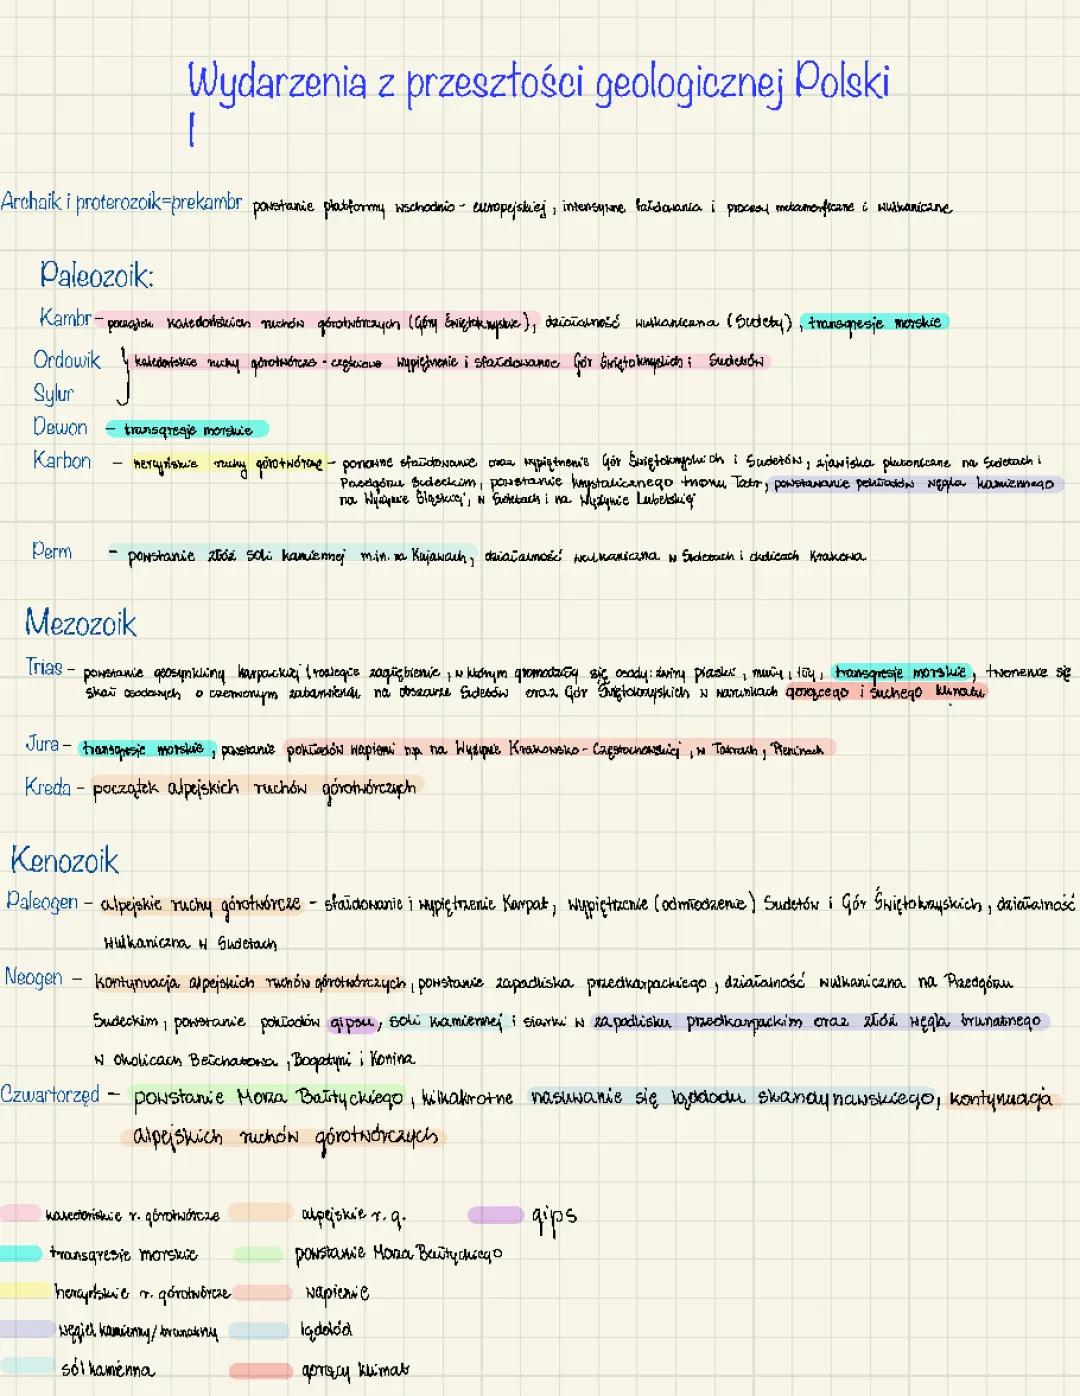 Wydarzenia z przeszłości geologicznej Polski
Archaik i proterozoik=prekambr powstanie platformy wschodnio - europejskiej, intensywne fałdowania i procesy metamorficzne i wulkaniczne
Paleozoik:
Kambr - początek kaledońskich ruchów górotwórczych (Góry Świętokrzyskie), działalność wulkaniczna (Sudety), transgresje morskie
Ordowik } kaledońskie ruchy górotwórcze - częściowe wypiętrzenie i sfałdowanie Gór Świętokrzyskich i Sudetów
Sylur
Dewon - transgresje morskie
Karbon - hercyńskie ruchy górotwórcze - ponowne sfałdowanie oraz wypiętrzenie Gór Świętokrzyskich i Sudetów, zjawiska plutoniczne na Sudetach i
Przedgórzu Sudeckim, powstanie krystalicznego trzonu Tatr, powstawanie pokładów węgla kamiennego
na Wyżynie Śląskiej, w Sudetach i na Wyżynie Lubelskiej
Perm - powstanie złóż soli kamiennej m.in. na Kujawach, działalność wulkaniczna w Sudetach i okolicach Krakowa
Mezozoik
Trias - powstanie geosynkliny karpackiej (rozległe zagłębienie, w którym gromadziły się osady: żwiry piaski, muły, iły, transgresje morskie, tworzenie się
skał osadowych o czerwonym zabarwieniu na obszarze Sudetów oraz Gór Świętokrzyskich w warunkach gorącego i suchego klimatu
Jura - transgresje morskie, powstanie pokładów wapieni np. na Wyżynie Krakowsko - Częstochowskiej, w Tatrach, Pieninach
Kreda - początek alpejskich ruchów górotwórczych
Kenozoik
Paleogen - alpejskie ruchy górotwórcze - sfałdowanie i wypiętrzenie Karpat, wypiętrzenie (odmłodzenie) Sudetów i Gór Świętokrzyskich, działalność
wulkaniczna w Sudetach
Neogen - kontynuacja alpejskich ruchów górotwórczych, powstanie zapadliska przedkarpackiego, działalność wulkaniczna na Przedgórzu
Sudeckim, powstanie pokładów gipsu, soli kamiennej i siarki w zapadlisku przedkarpackim oraz złóż węgla brunatnego
w okolicach Bełchatowa, Bogatyni i Konina
Czwartorzęd - powstanie Morza Bałtyckiego, kilkakrotne nasuwanie się lądolodu skandynawskiego, kontynuacja
alpejskich ruchów górotwórczych
kaledońskie r. górotwórcze alpejskie r. g. gips
transgresje morskie powstanie Morza Bałtyckiego
hercyńskie r. górotwórcze wapienie
węgiel kamienny/brunatny lądolód
sól kamienna gorący klimat